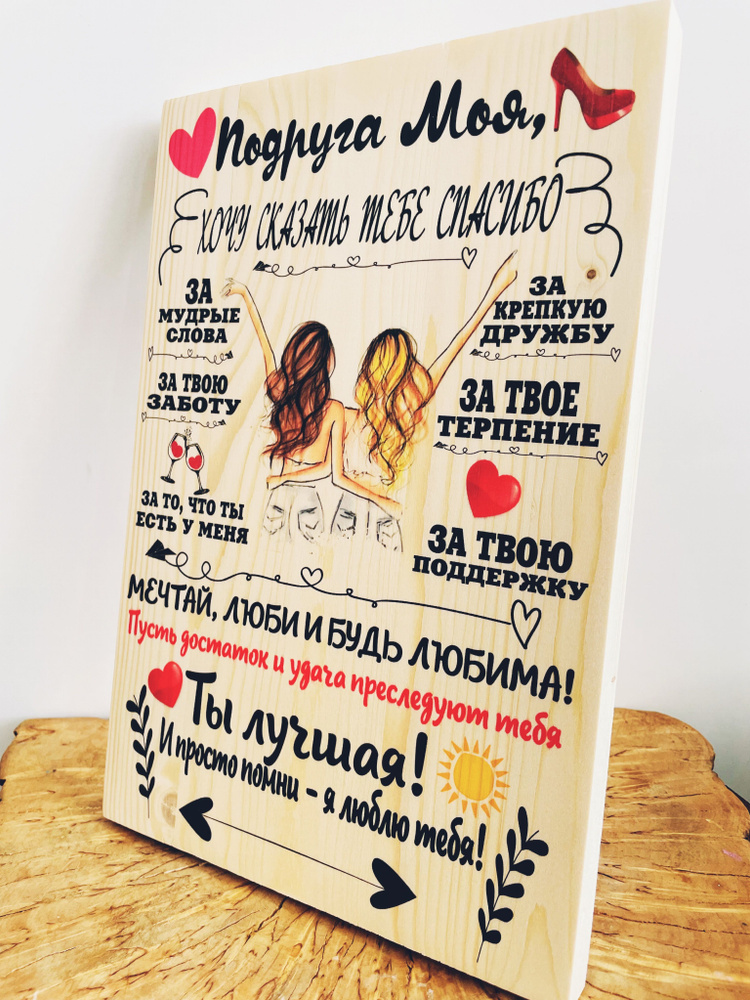 Подруга Моя,
ХОЧУ СКАЗАТЬ ТЕБЕ СПАСИБО
ЗА
МУДРЫЕ
СЛОВА
ЗА ТВОЮ
ЗАБОТУ
ЗА ТО, ЧТО ТЫ
ЕСТЬ У МЕНЯ
ЗА
КРЕПКУЮ
ДРУЖБУ
ЗА ТВОЕ
ТЕРПЕНИЕ
ЗА ТВОЮ
ПОДДЕРЖКУ
МЕЧТАЙ, ЛЮБИ И БУДЬ ЛЮБИМА!
Пусть достаток и удача преследуют тебя
Ты лучшая!
И просто помни - я люблю тебя!